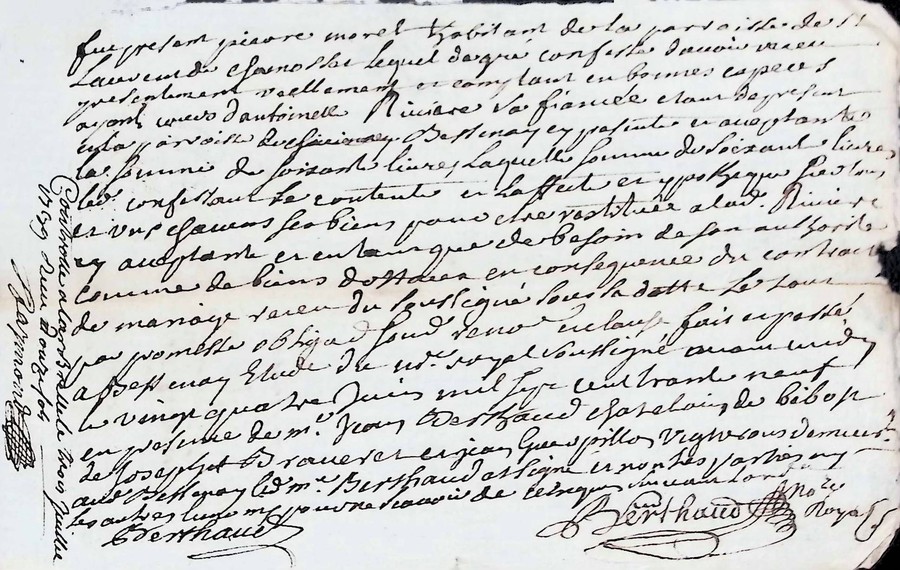 fut present pierre morel habitant de la parroisse de st
Laurent de chamosset lequel de gré confesse davoir receu
presentement reellement et comptant en bonnes especes
ayant cours d'antoinette Riviere sa fiancée etant de present
en la parroisse de Bessenay cy presente et acceptante
la somme de soixante livres laquelle somme de soixante livres
led. confessant se contente et laffecte et ypotheque sur tous
et uns chacuns ses biens pour estre restituée a lad. Riviere
cy acceptante et en tant que de besoin de son authorité
comme de biens dottaux en consequence du contract
de mariage receu du soussigné sous la datte Le tout
par promesse obligaõn soub. renon. et clause fait et passé
a Bessenay Etude du no.re royal soussigné avant midy
le vingt quatre Juin mil sept cent trante neuf
en presence de m.e Jean Berthaud chatelain de bibost
de Joseph Braveret et Jean vignerons demeur.
aud. Bessenay led. m.e Berthaud a signé et non les parties ny
les autres temoins pour ne scavoir de ce enquis
Berthaud
Berthaud No.re Royal
Controlle a Larbresle le trois Juillet
1739 receu douze sols
Raymond